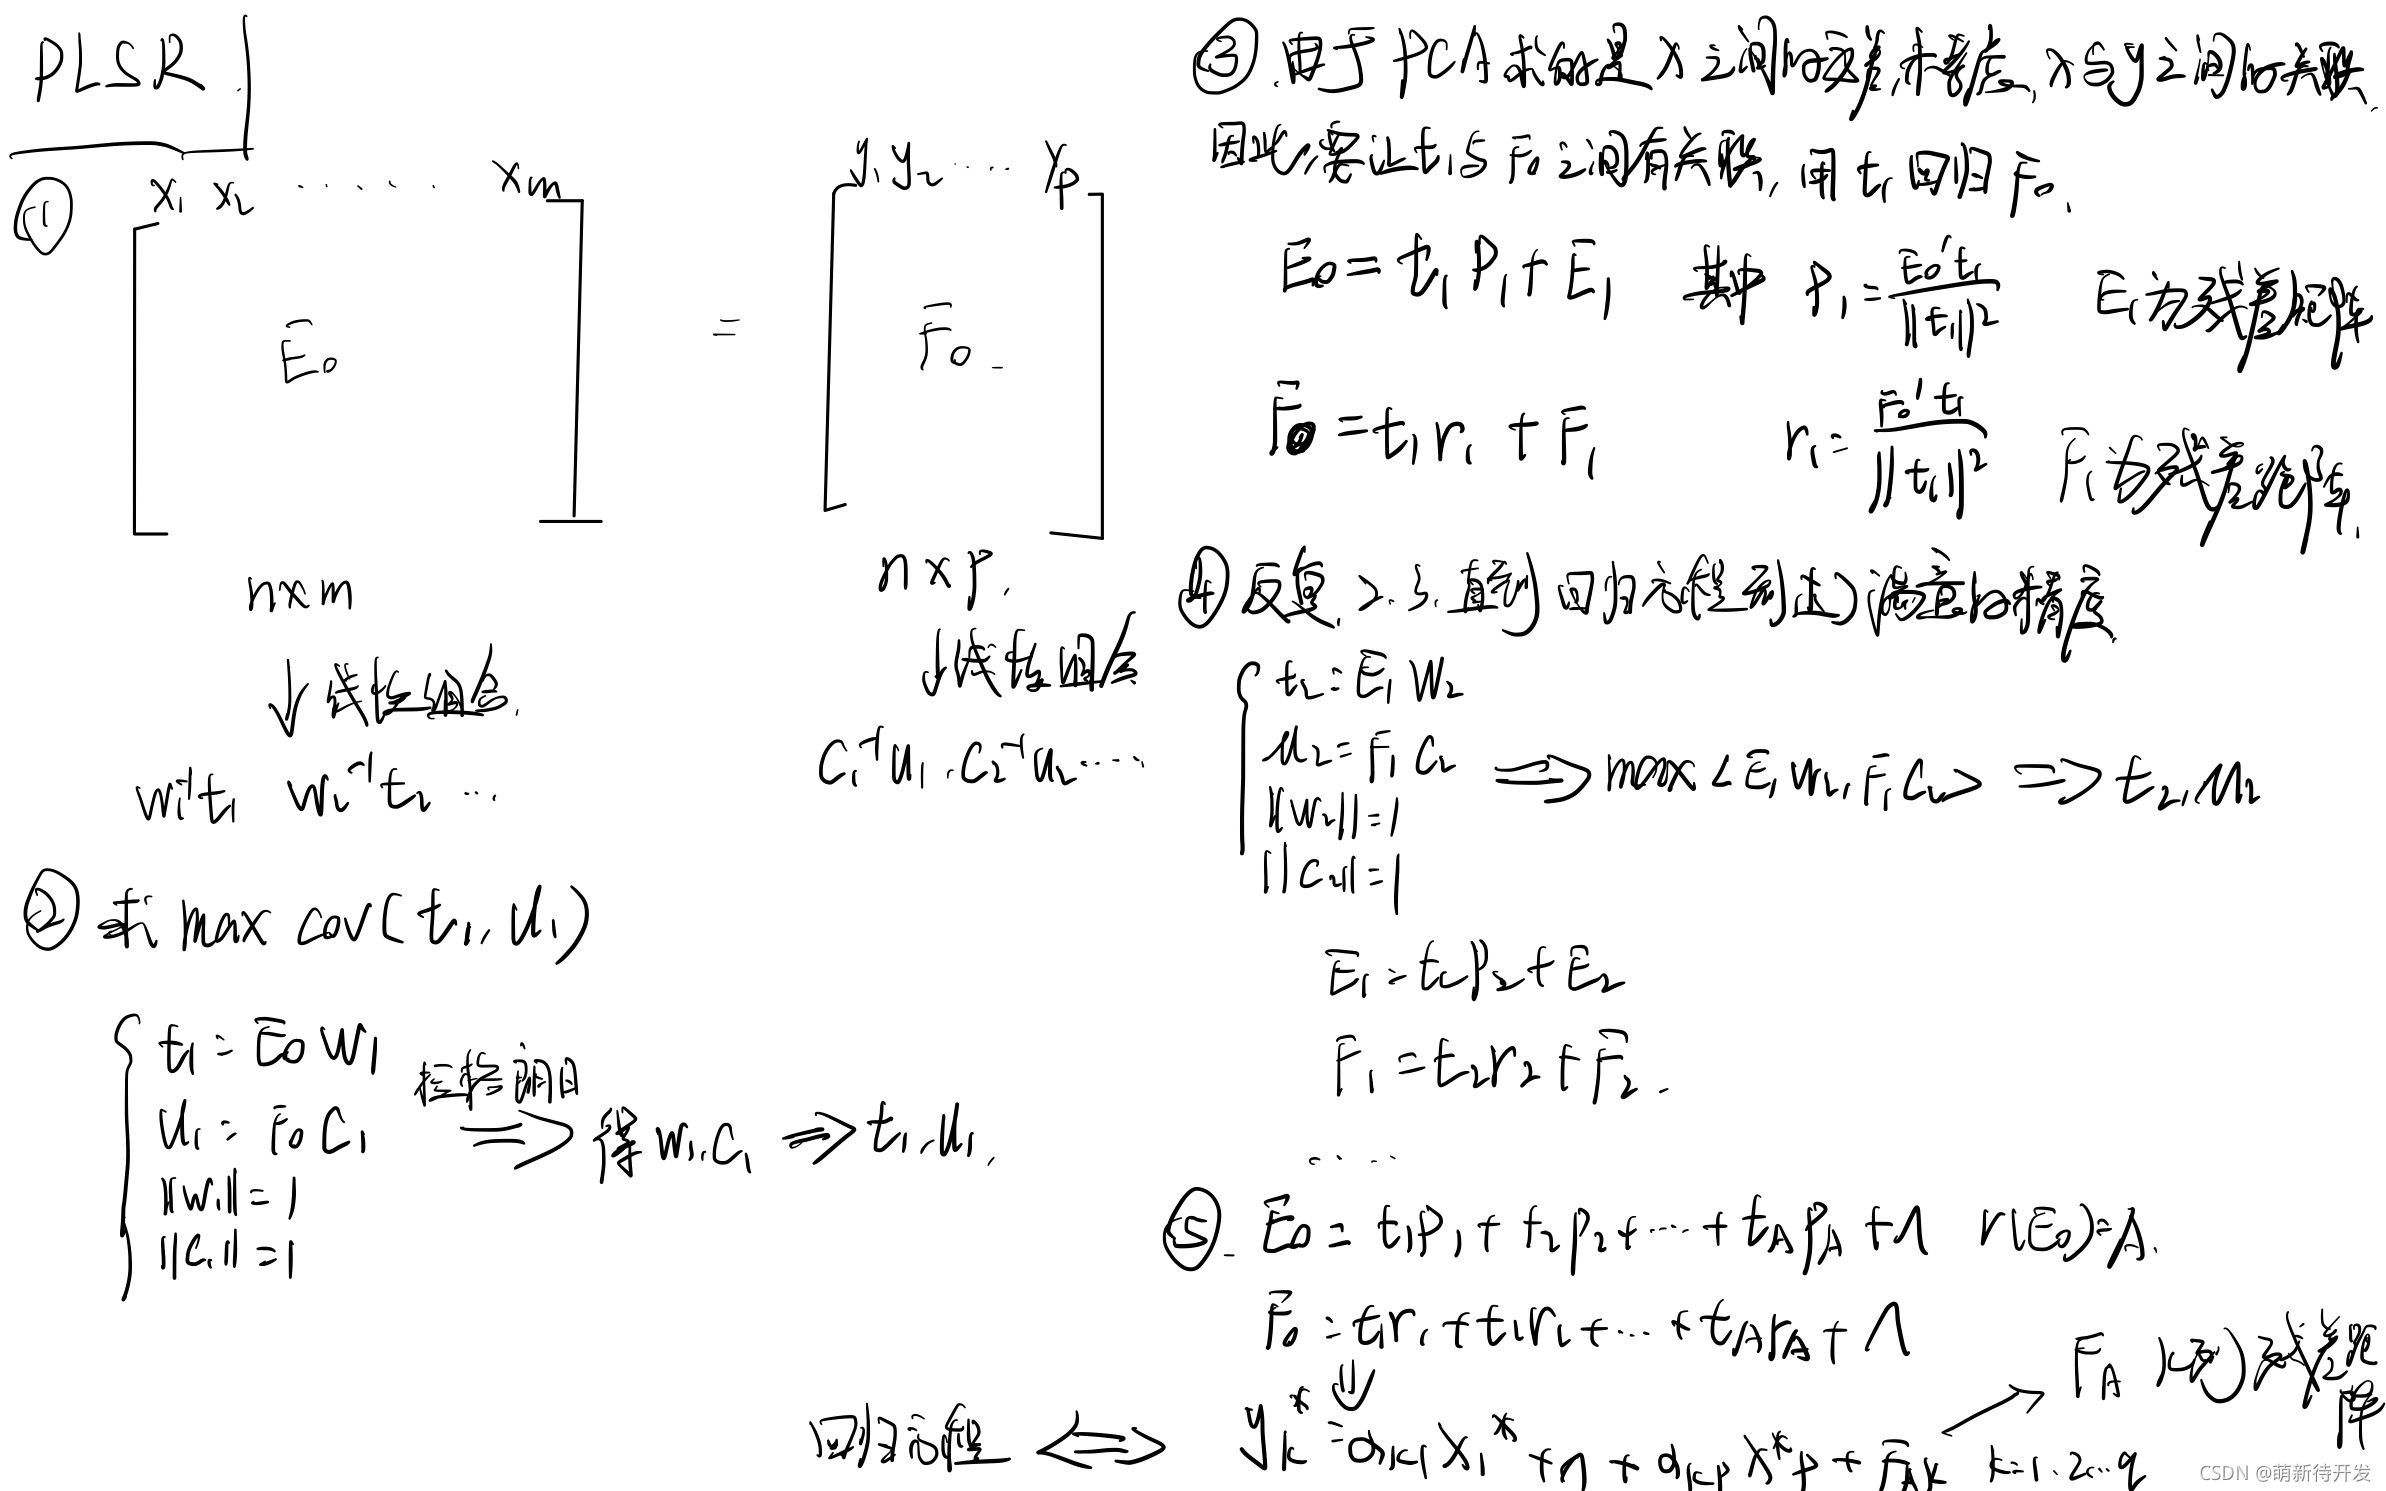 PLSR
① x₁ x₂ ...... xₘ
y₁ y₂ ..... yₚ
E₀ = F₀
n×m
n×p.
↓线性组合.
↓线性组合
w₁⁻¹t₁ w₂⁻¹t₂ ...
C₁⁻¹u₁. C₂⁻¹u₂.....
② 求 max cov(t₁, u₁)
t₁ = E₀ w₁
u₁ = F₀ C₁
||w₁|| = 1
||C₁|| = 1
⇒ 得 w₁. C₁ ⇒ t₁, u₁.
③.由于PCA求的是X之间的 X与y之间的关联.
因此,要让t₁与F₀之间有关联, 用t₁回归F₀.
E₀ = t₁ P₁ + E₁ 其中 P₁ = E₀'t₁ / ||t₁||² E₁为残差矩阵
F₀ = t₁ r₁ + F₁ r₁ = F₀'t₁ / ||t₁||² F₁为残差矩阵.
④ 反复 2. 3. 直到回归方程到达满意的精度
t₂ = E₁ W₂
u₂ = F₁ C₂
||w₂|| = 1
||C₂|| = 1
⇒ max < E₁ w₂, F₁ C₂ > ⇒ t₂, u₂
E₁ = t₂ p₂ + E₂
F₁ = t₂ r₂ + F₂.
.....
⑤. E₀ = t₁p₁ + t₂p₂ + ... + t_A p_A + Λ r(E₀)=A.
F₀ = t₁r₁ + t₁r₂ + ... + t_A r_A + Λ
⇓
回归方程 ⇔ y_k* = a_k1 x₁* + n + a_kp x*p + F_Ak k=1.2...q
→ F_A 残差矩阵
CSDN @萌新待开发